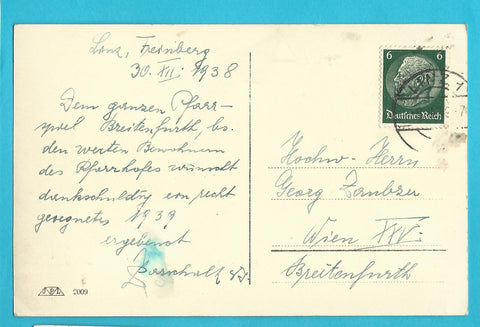 Linz, Freinberg
30. XII. 1938
Dem ganzen Pfarr-
Breitenfurth, bs.
den werten Bewohnern
des Pfarrhofes wünscht
dankschuldig ein recht
gesegnetes 1939
ergebenst
6 6
Deutsches Reich
LINZ
Hochw. Herrn
Georg
Wien XXV.
Breitenfurth
2009